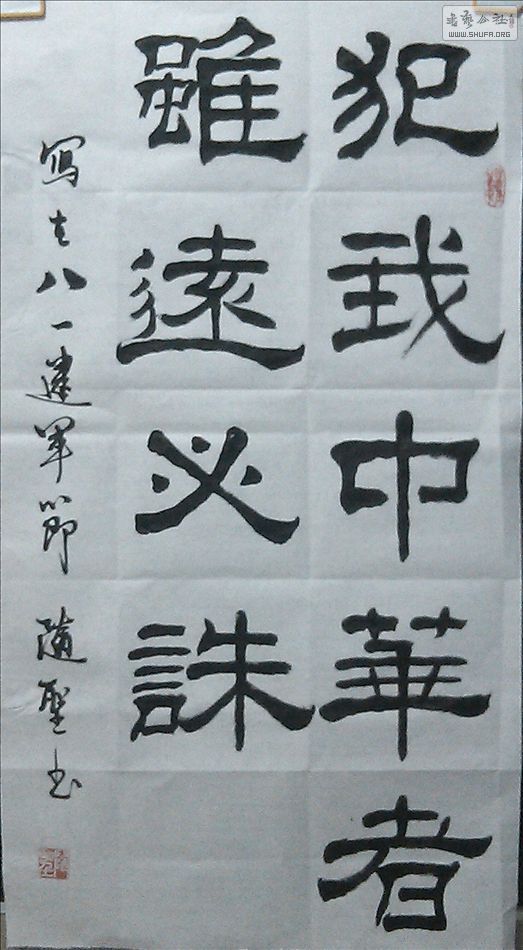 犯我中華者
雖遠必誅
寫於八一建軍節 隨聖书
书艺公社
WWW.SHUFA.ORG